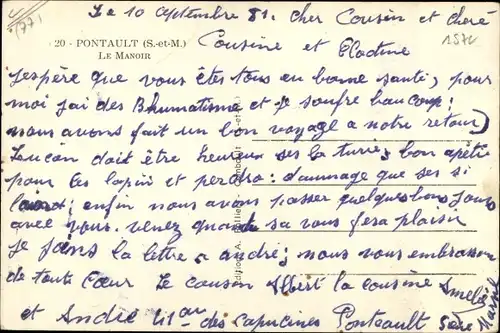 (77)
Le 10 Septembre 81. cher Cousin et cheré
Cousine et Clodine
1574
20 - PONTAULT (S.-et-M.)
LE MANOIR
jespère que vous êtes tous en bonne santé, pour
moi jai des Rhumatisme et je soufre baucoup:
nous avons fait un bon voyage a notre retour)
Lucien doit être heureux ses la turie, bon apéti
pour les lapin et perdro: daumage que ses si
enfin nous avons passer quelques bons jours
avec vous. venez quand sa vous fera plaisir
je la lettre a andré; nous vous embrassons
de toute cœur Le cousin Albert la cousine Amelie
et André 41 des Capucines Ponteault Seine Marne